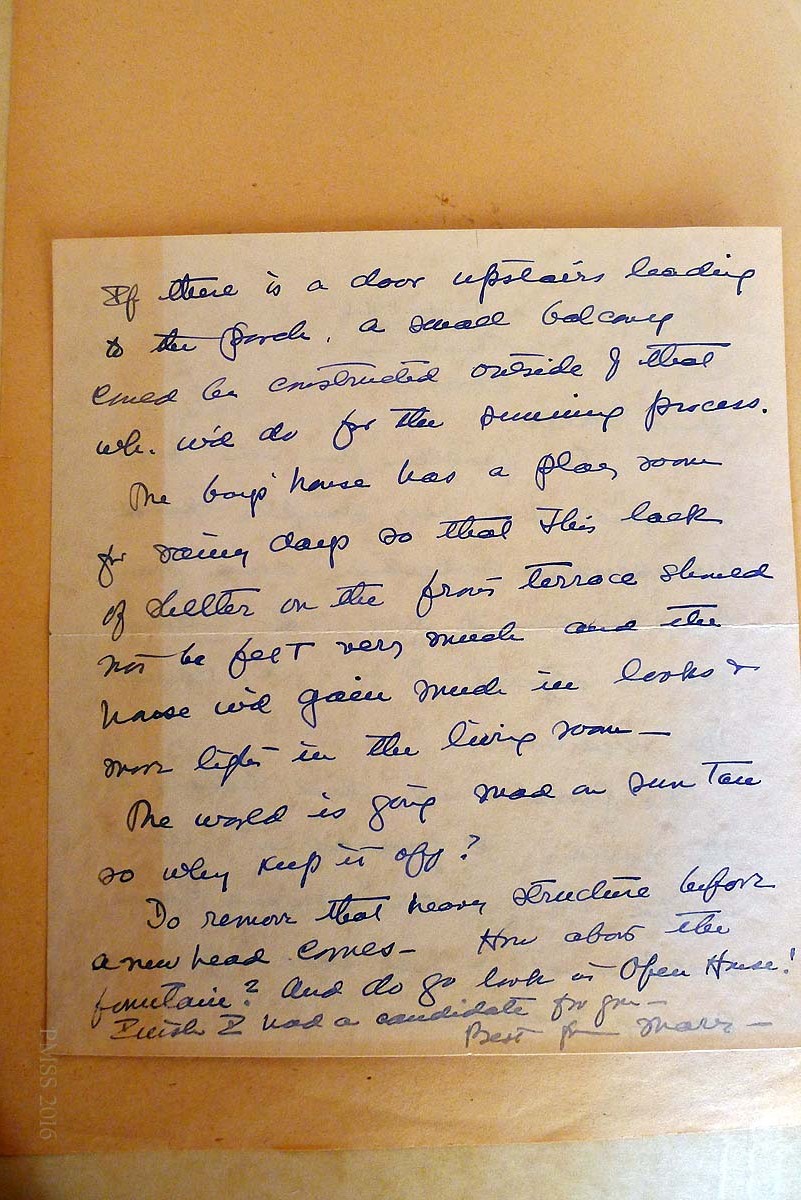 If there is a door upstairs leading
to the porch, a small balcony
could be constructed outside of that
wh. w'd do for the sunning process.
The boys' house has a play room
for rainy days so that this lack
of shelter on the front terrace should
not be felt very much and the
house w'd gain much in looks &
more light in the living room —
The world is going mad on sun tan
so why keep it off?
Do remove that heavy structure before
a new head comes — How about the
fountain? And do go look at Open House!
I wish I had a candidate for you —
Best from Mary —
PMSS 2016